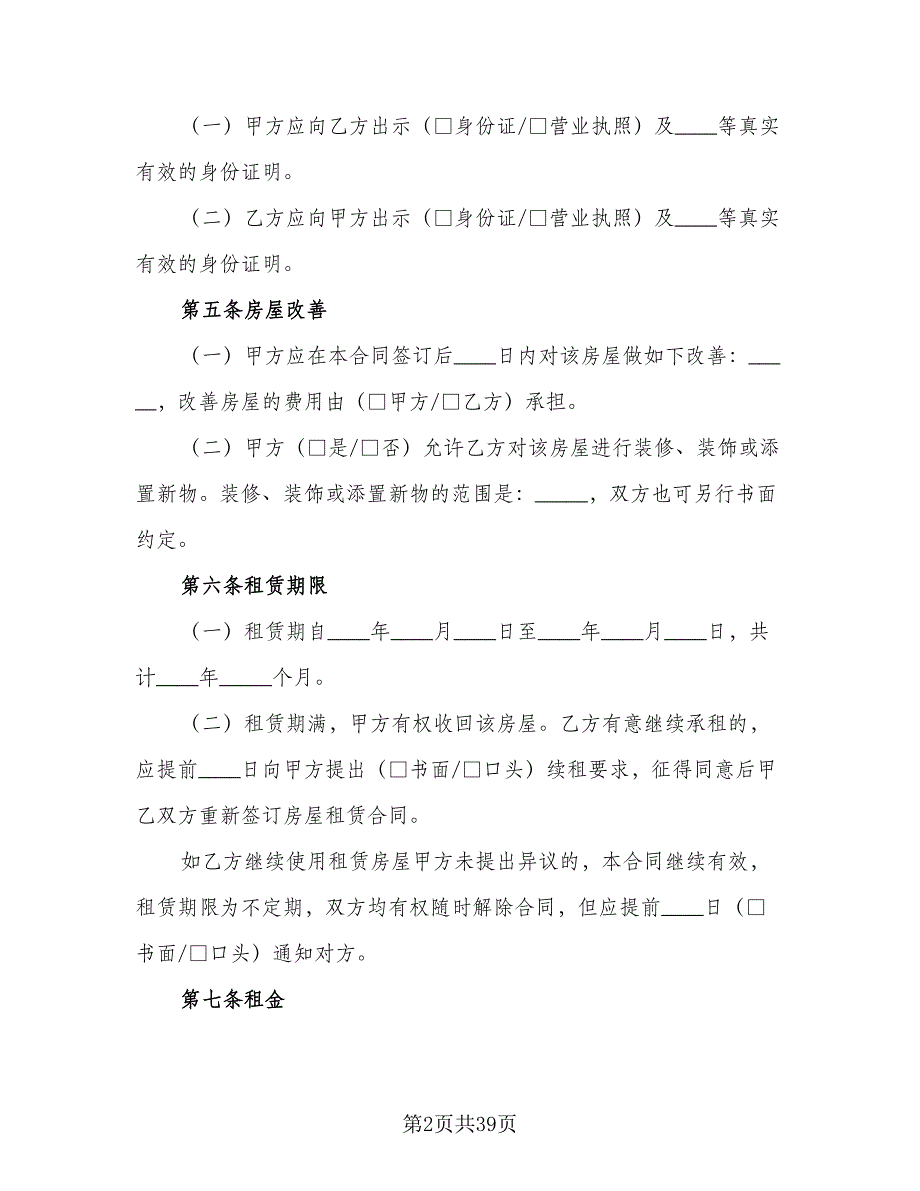 （一）甲方应向乙方出示（□身份证/□营业执照）及____等真实
有效的身份证明。
（二）乙方应向甲方出示（□身份证/□营业执照）及____等真实
有效的身份证明。
第五条房屋改善
（一）甲方应在本合同签订后____日内对该房屋做如下改善：___
__，改善房屋的费用由（□甲方/□乙方）承担。
（二）甲方（□是/□否）允许乙方对该房屋进行装修、装饰或添
置新物。装修、装饰或添置新物的范围是：_____，双方也可另行书面
约定。
第六条租赁期限
（一）租赁期自____年____月____日至____年____月____日，共
计____年_____个月。
（二）租赁期满，甲方有权收回该房屋。乙方有意继续承租的，
应提前____日向甲方提出（□书面/□口头）续租要求，征得同意后甲
乙双方重新签订房屋租赁合同。
如乙方继续使用租赁房屋甲方未提出异议的，本合同继续有效，
租赁期限为不定期，双方均有权随时解除合同，但应提前____日（□
书面/□口头）通知对方。
第七条租金
第2页共39页